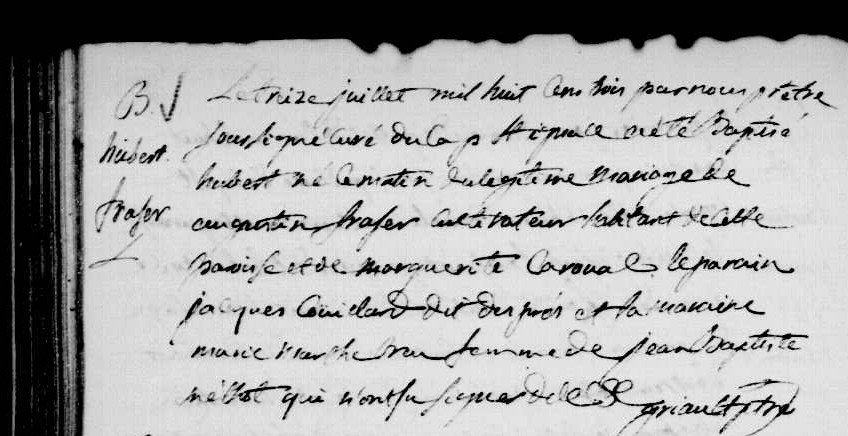 B.
hubert
fraser
Le treize juillet mil huit cens trois par nous prêtre
soussigné curé du Cap St ignace a été Baptisé
hubert né ce matin du legitime mariage de
augustin fraser cultivateur habitant de cette
paroisse et de marguerite Caroual le parain
jacques Couillard dit després et la maraine
marie marthe femme de jean Baptiste
méthot qui n'ont su signer de ce
ptre